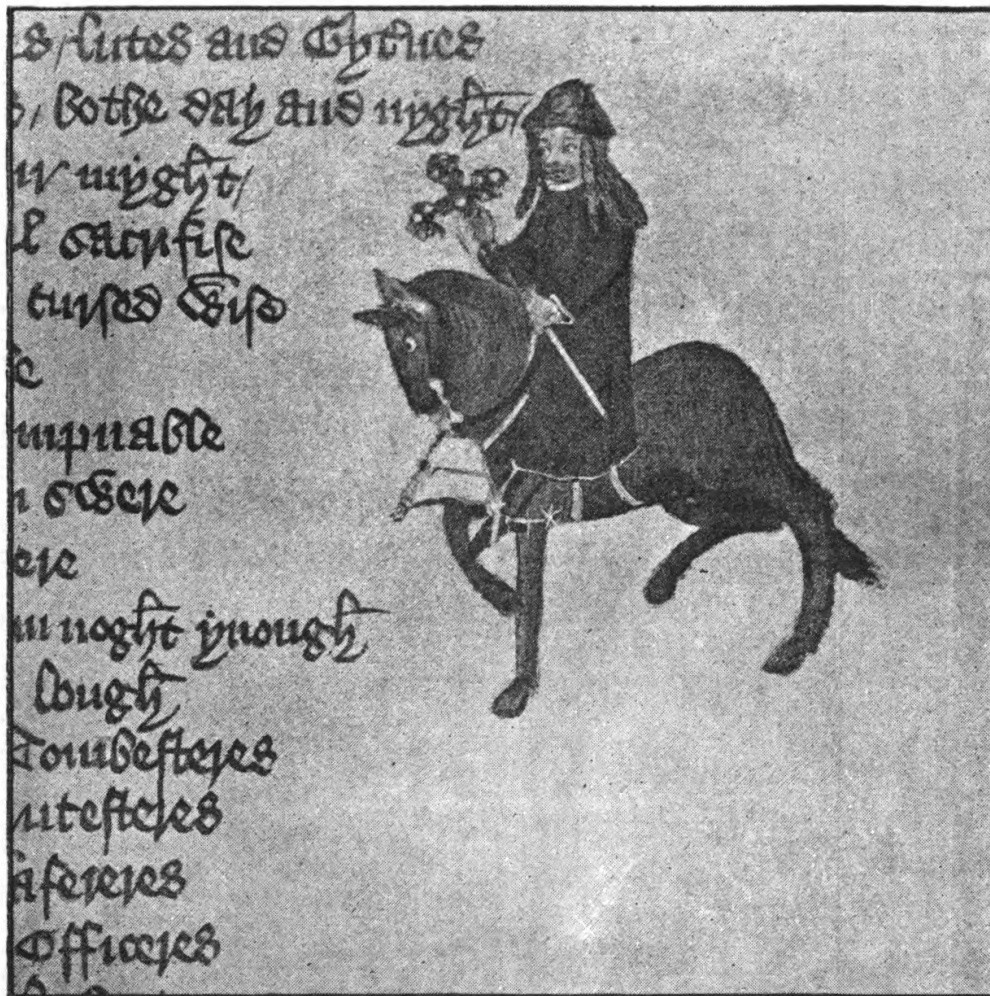 lutes and Gyternes
bothe day and nyght /
myght /
sacrifise
cursed wise
mpnable
swere
ere
noght ynough
lough
Tombesteres
utesteres
afereres
Officeres